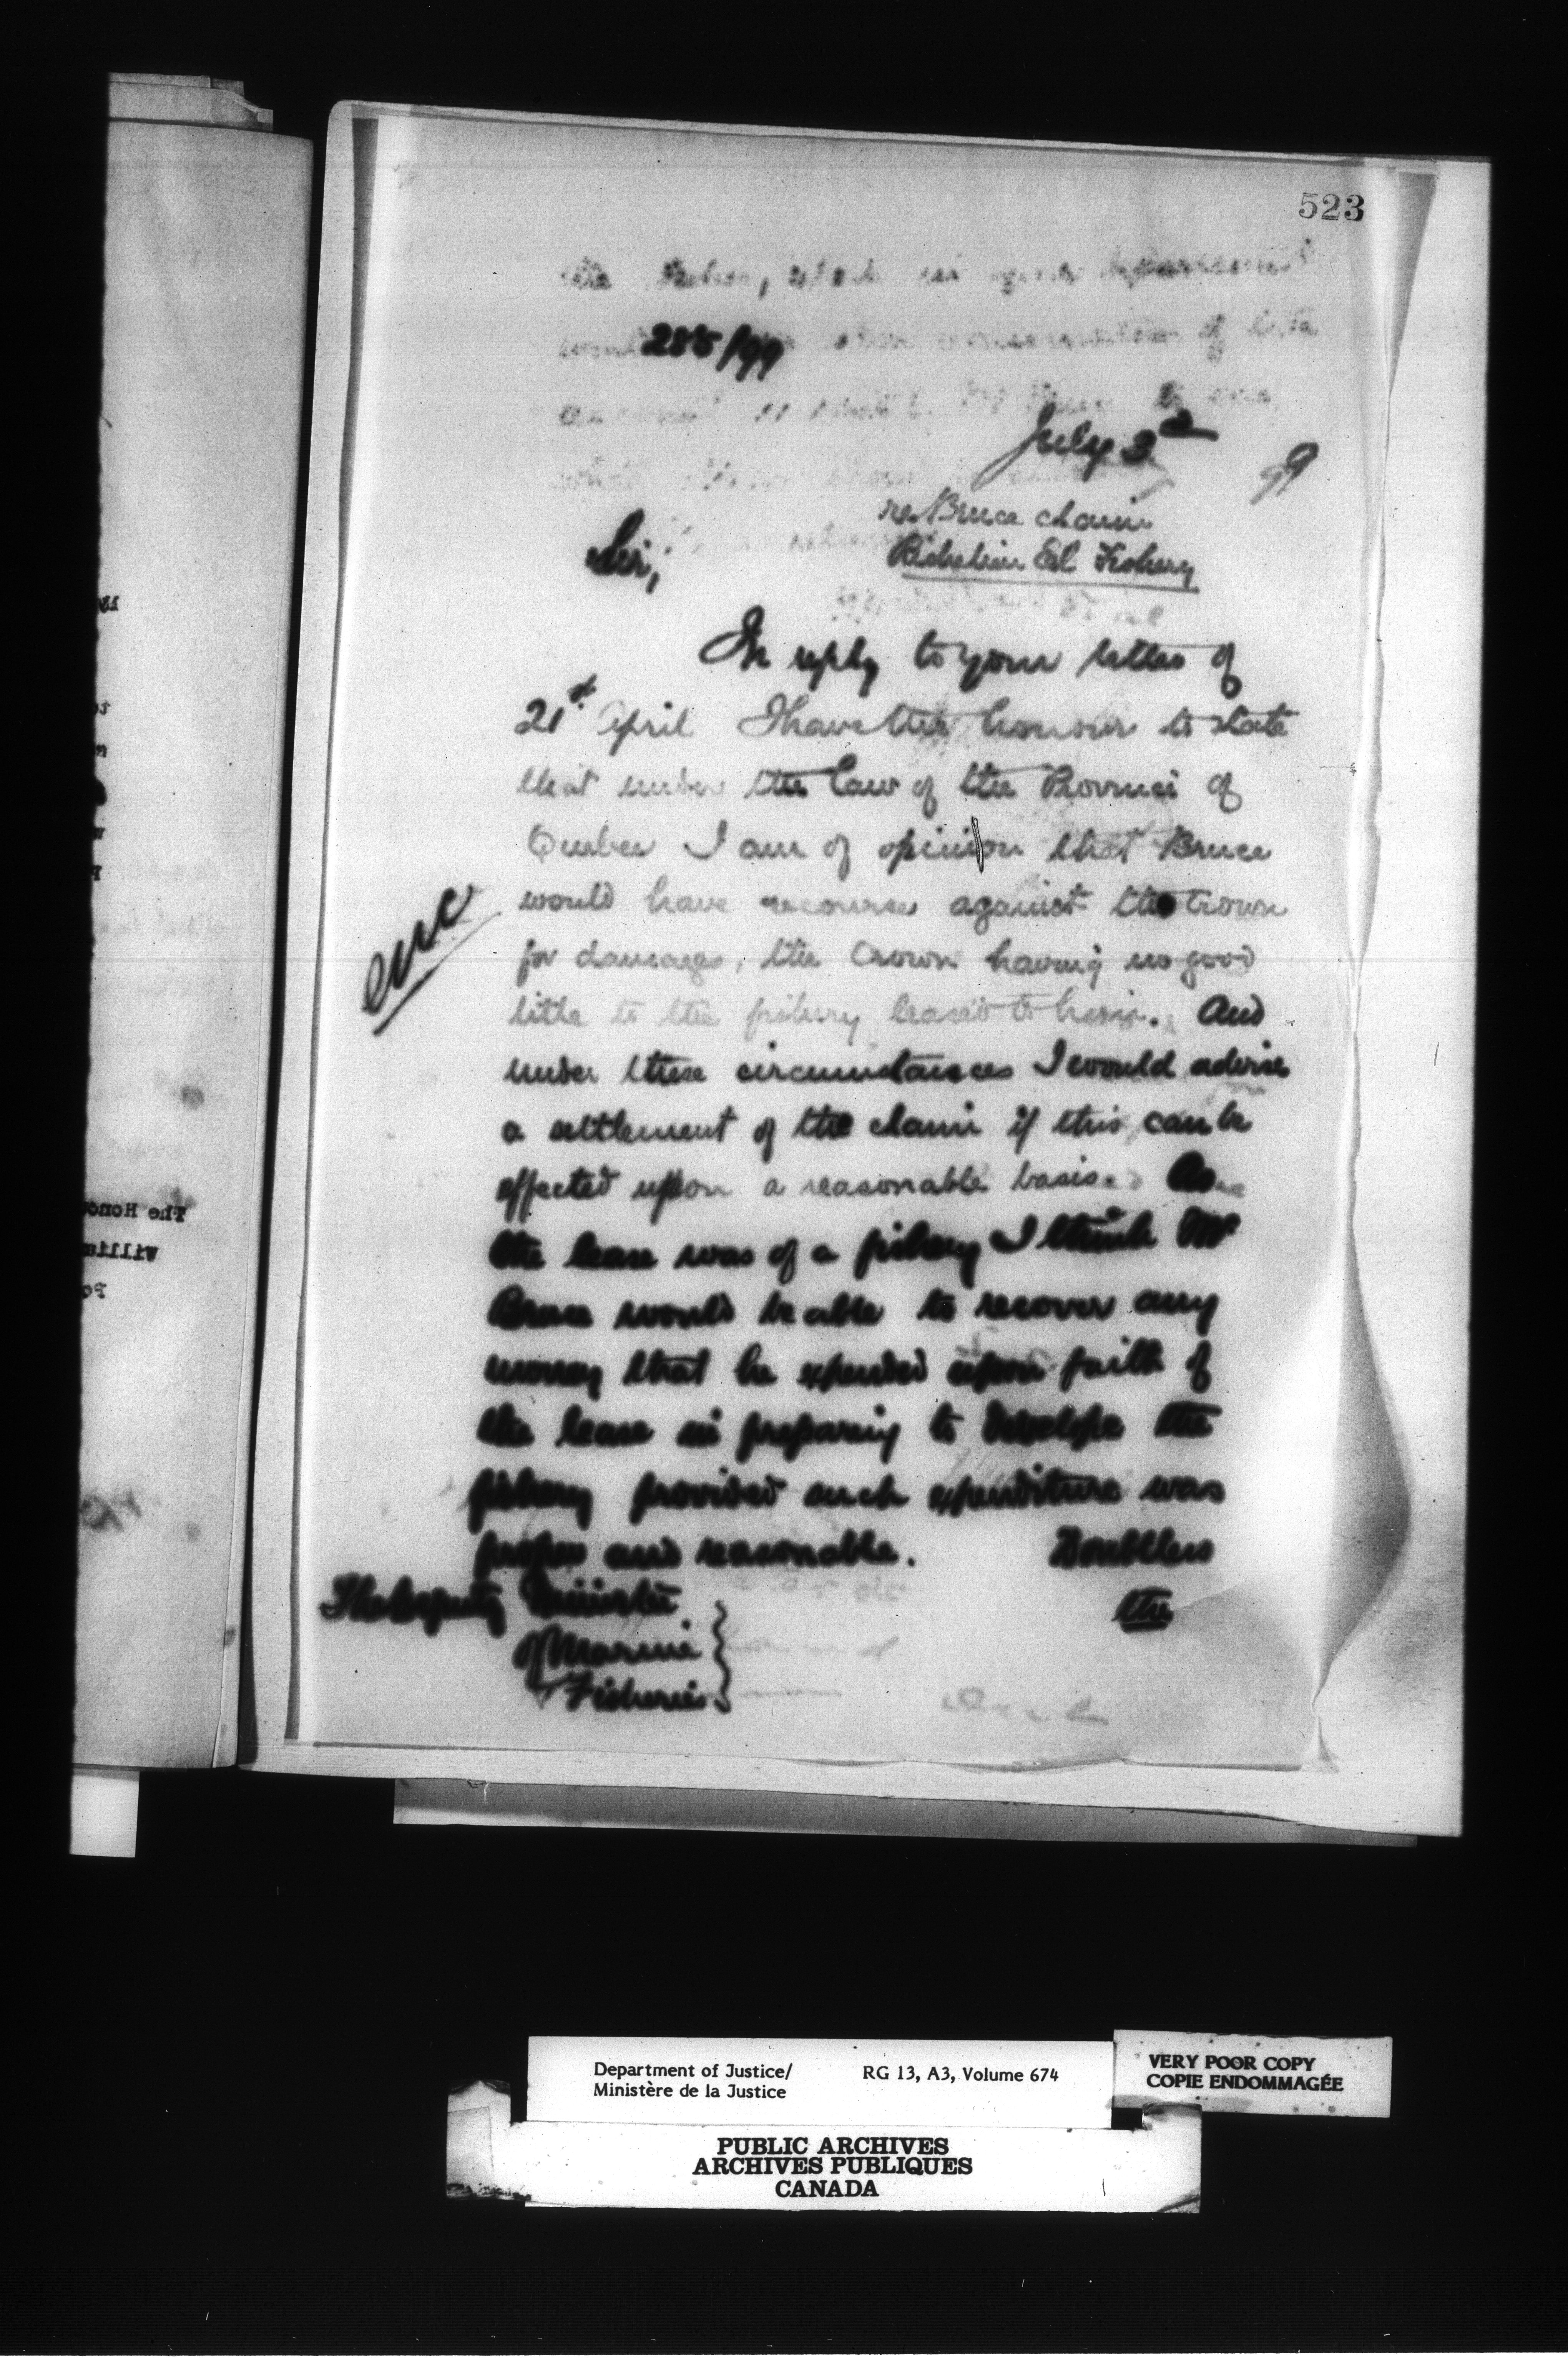 523
285/99
July 3d
99
re Bruce claim
Richelieu Eel Fishery
Sir,
In reply to your letter of
21st April I have the honour to state
that under the law of the Province of
Quebec I am of opinion that Bruce
would have recourse against the Crown
for damages, the Crown having no good
title to the fishery leased to him. And
under these circumstances I would advise
a settlement of the claim if this can be
effected upon a reasonable basis. As
the lease was of a fishery I think Mr
Bruce would be able to recover any
money that he expended upon faith of
the lease in preparing to develope the
fishery provided such expenditure was
proper and reasonable. Doubtless
the
The Deputy Minister
of Marine
Fisheries
enc
The Hono
Willia
Department of Justice/
Ministère de la Justice
RG 13, A3, Volume 674
VERY POOR COPY
COPIE ENDOMMAGÉE
PUBLIC ARCHIVES
ARCHIVES PUBLIQUES
CANADA